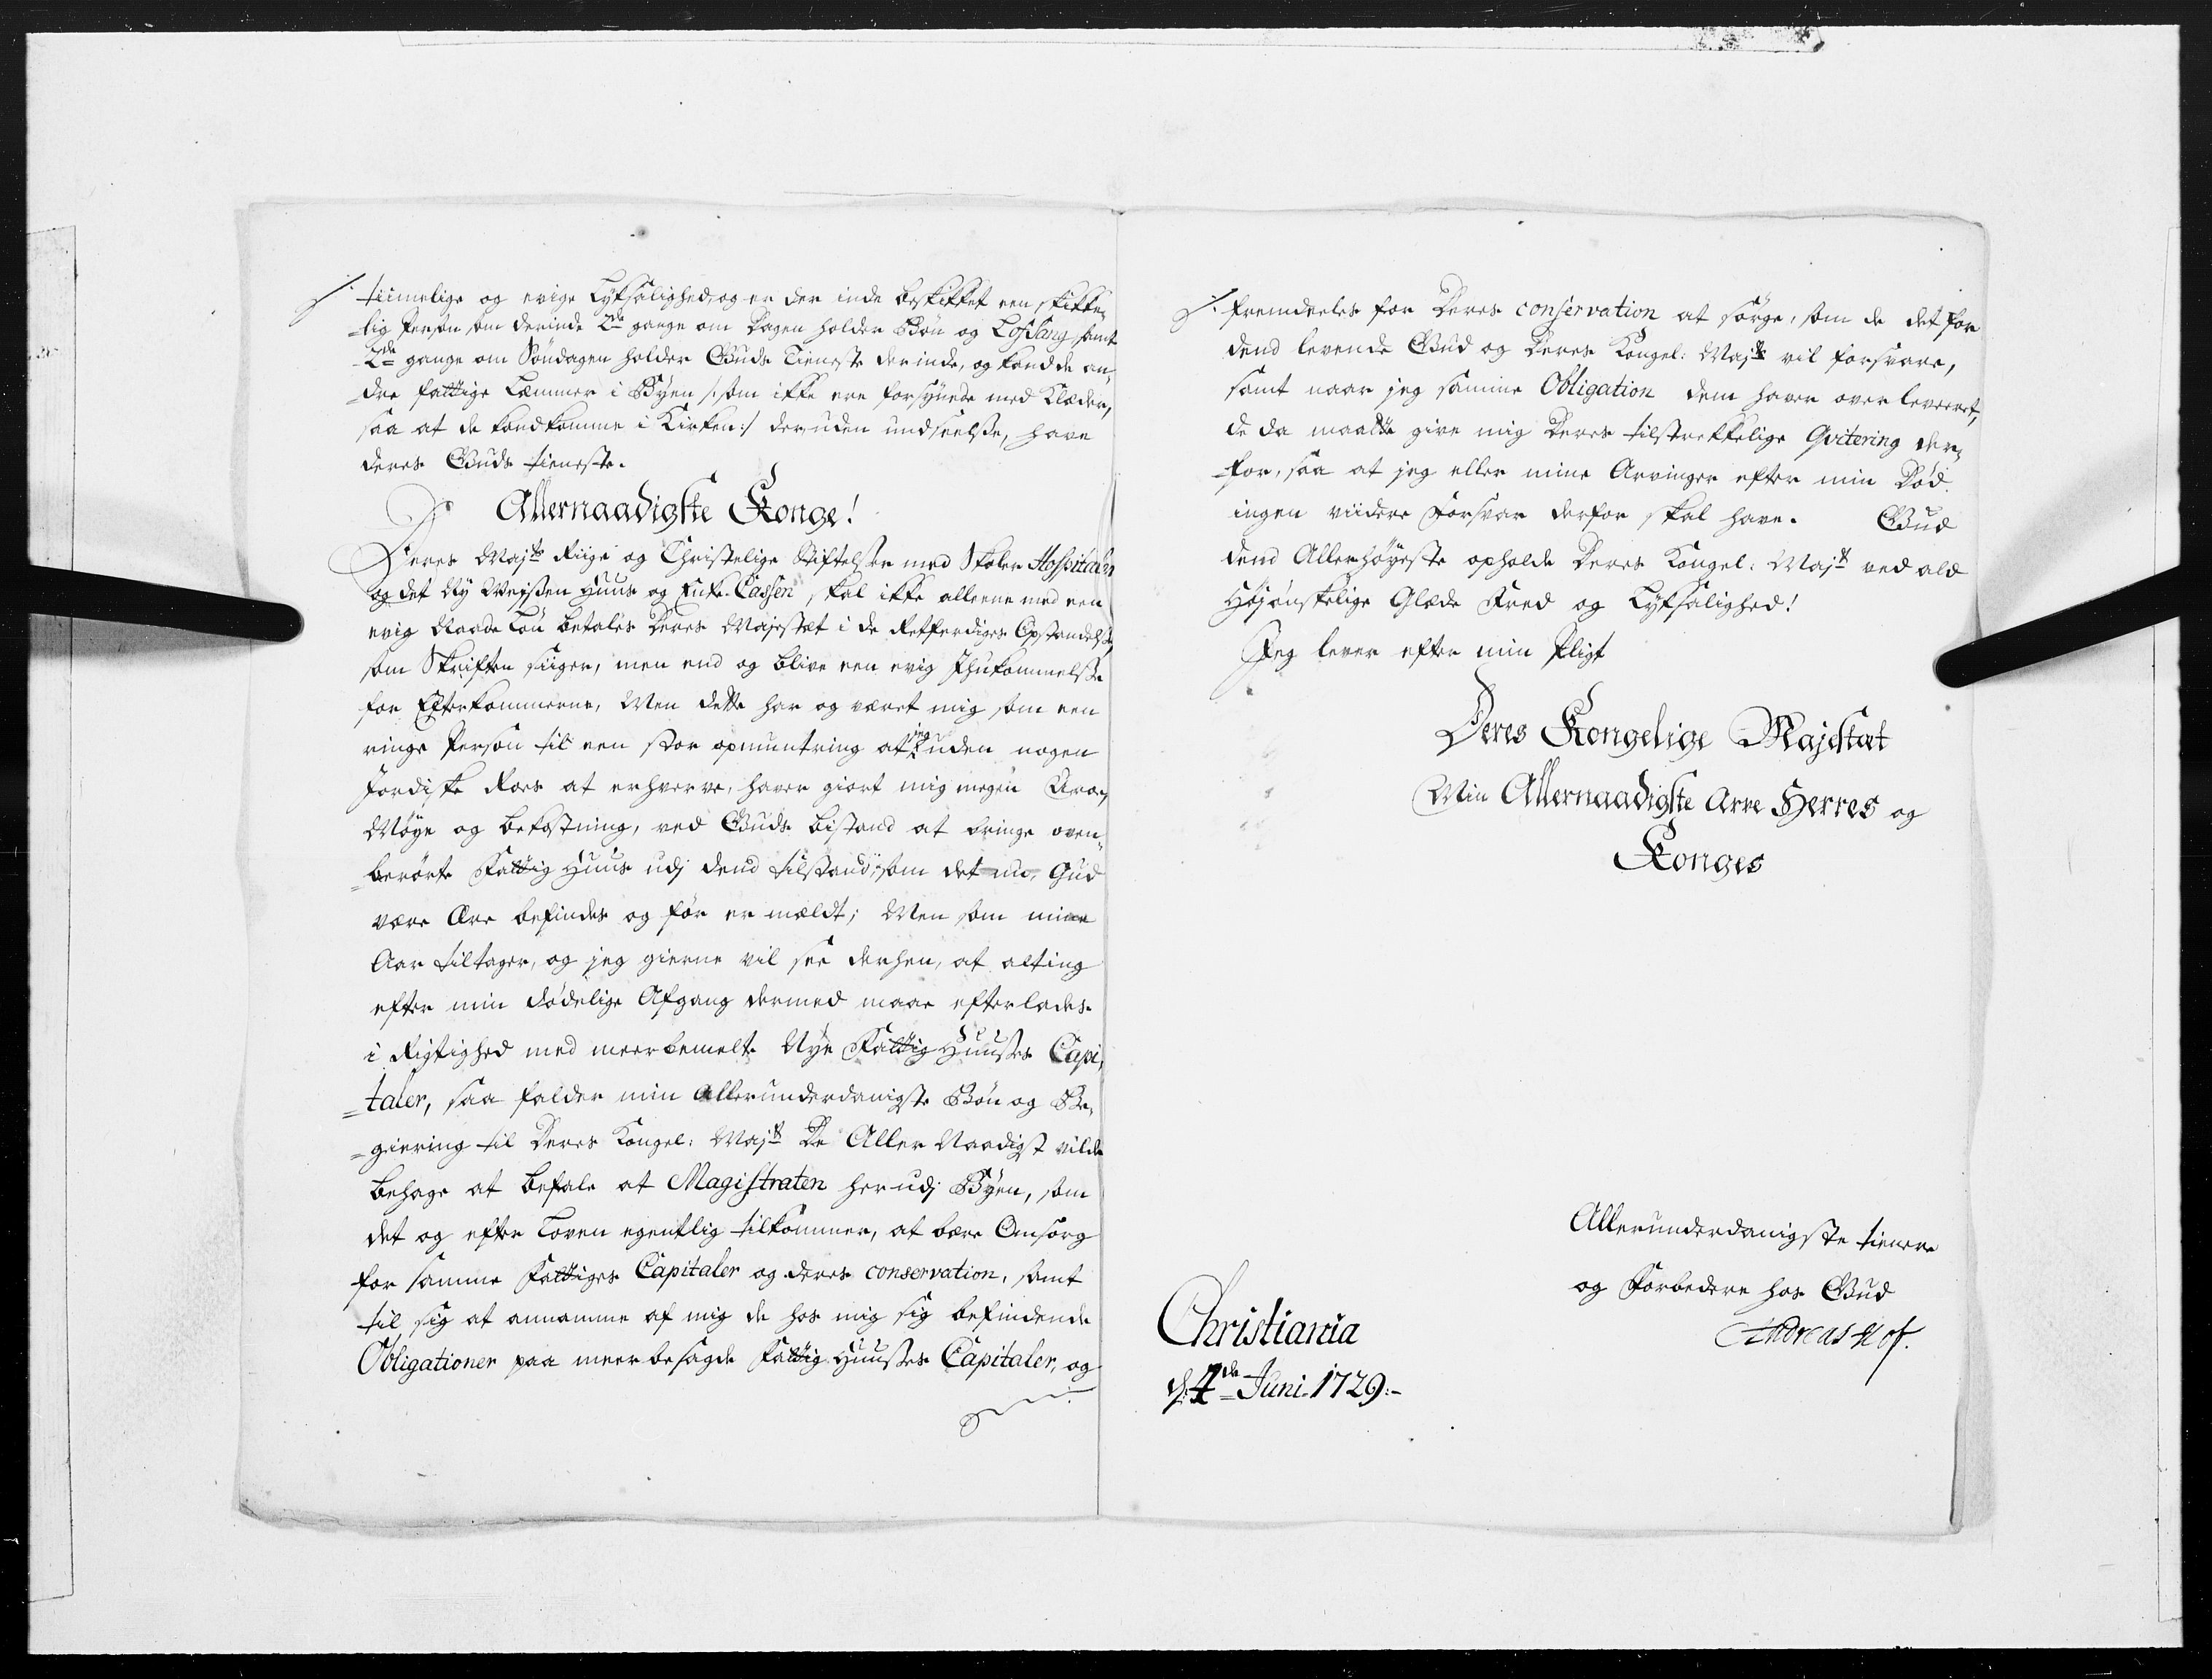 /: tiimelige og evige Lyksalighed, og er der inde beskikket een skikke¬
-lig Person, som derinde 2de gange om Dagen holder Bøn og Lofsang, samt
2de gange om Søndagen holder Guds Tieneste derinde, og kand de an¬
-dre fattige Lemmer i Byen /: som ikke ere forsynede med Klæder,
saa at de kand komme i Kirken :/ der uden undseelse, have
deres Guds tieneste.
Allernaadigste Konge!
Deres Majts Riige og Christelige Stiftelser med Skoler Hospitaler
og det Ny Weysen Huus og Enke-Cassen, skal ikke alleene med een
evig Naade Løn betales Deres Majestæt i de Retferdiges Opstandelse,
som Skriften siiger, men end og blive een evig Ihukommelse
for Efterkommerne, Men dette har og været mig som een
ringe Person til een stor opmuntring at jeg uden nogen
Jordiske Roes at erhverve, haver giort mig megen Umag,
Møye og bekostning, ved Guds bistand at bringe oven¬
=berørte Fattig Huus udj dend tilstand, som det nu, Gud
være Ære befindes og før er meldt; Men som mine
Aar tiltager, og jeg gierne vil see derhen, at alting
efter min dødelige Afgang dermed maae efterlades
i Rigtighed med meerbemelte Nye Fattig Huuses Capi¬
=taler, saa falder min Allerunderdanigste Bøn og Be¬
=giering til Deres Kongel: Majt De Aller Naadigst vilde
behage at befale at Magistraten her udj Byen, som
det og efter Loven egentlig tilkommer, at bære Omsorg
for samme Fattiges Capitaler og deres conservation, samt
til sig at annamme af mig de hos mig sig befindende
Obligationer paa meerbesagde Fattig Huuses Capitaler, og
/: fremdeeles for Deres conservation at sørge, som de det for
dend levende Gud og Deres Kongel: Majt vil forsvare,
samt naar jeg samme Obligation dem haver overleveret,
de da maatte give mig Deres tilstrekkelige Qvitering der¬
-for, saa at jeg eller mine Arvinger efter min Død
ingen viidere Forsvar derfor skal have. Gud
dend Allerhøyeste opholde Deres Kongel: Majt ved ald
Højønskelige Glæde Fred og Lyksalighed!
Jeg lever efter min Pligt
Deres Kongelige Majestæt
Min Allernaadigste Arve Herres og
Konges
Allerunderdanigste tienere
og Forbedere hos Gud
Andreas Hof.
Christiania
d: 4de Juni 1729:-